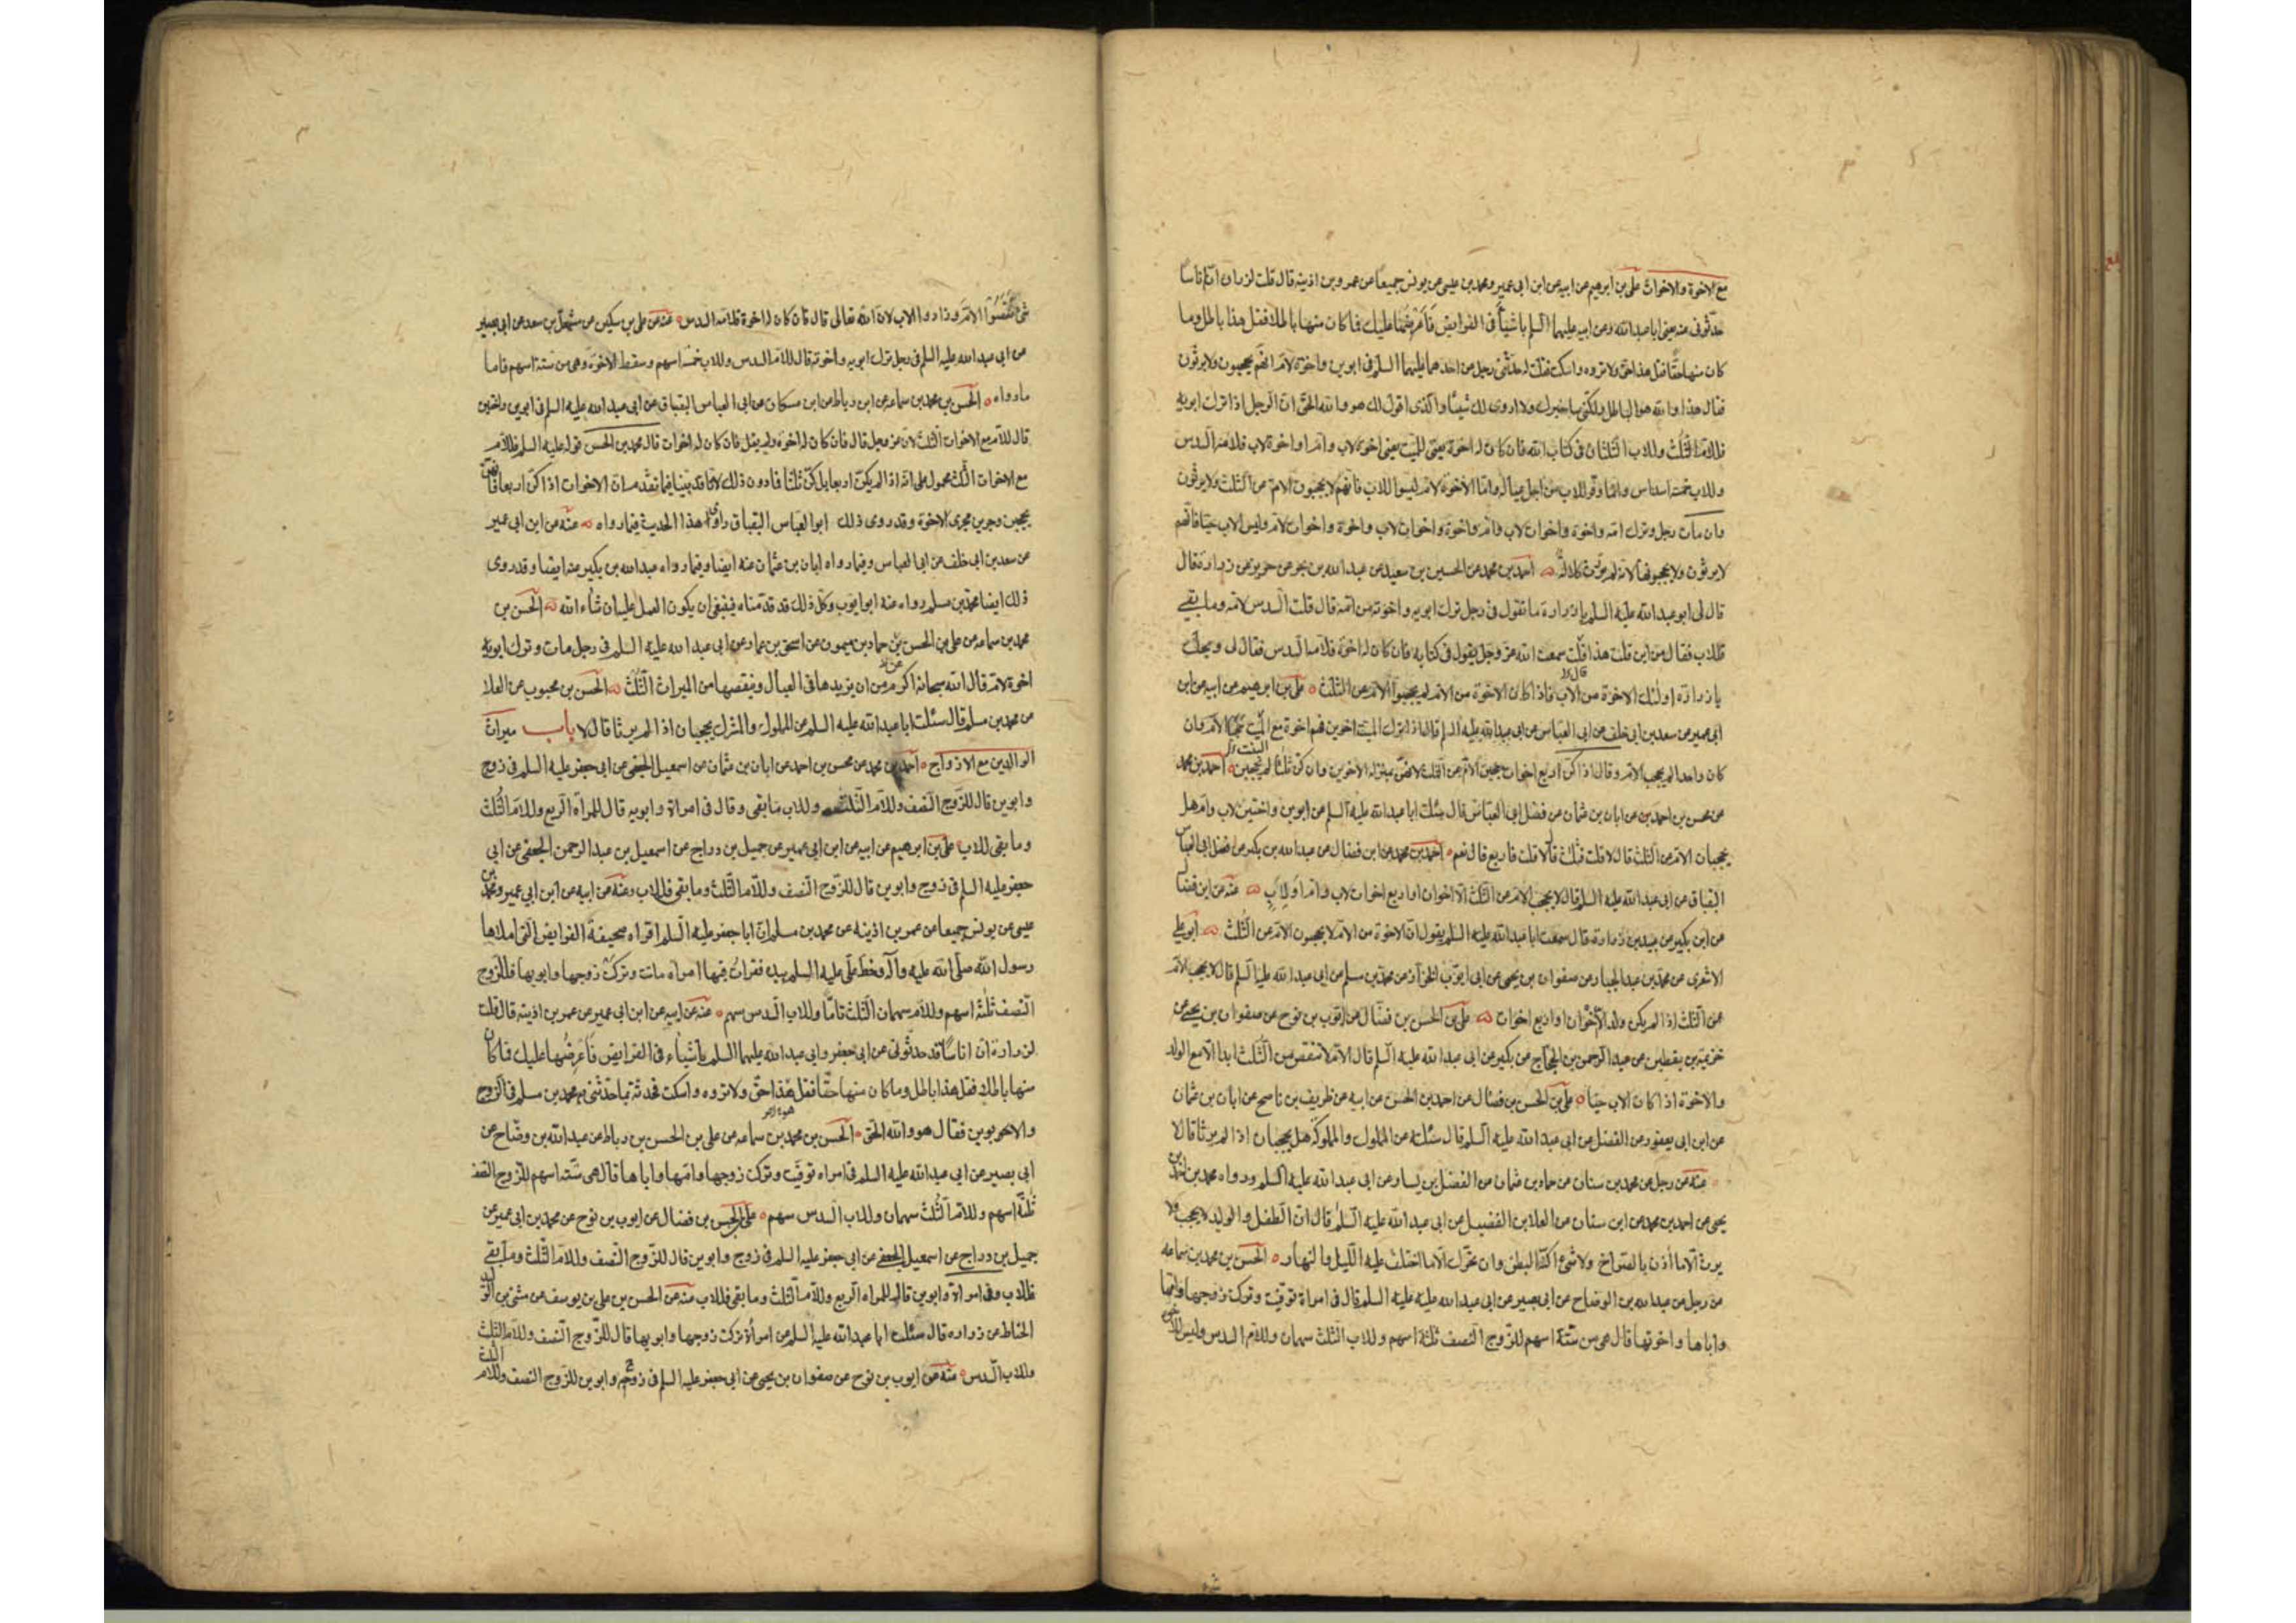 مع الاخوة والاخوات علی بن ابرهیم عن ابیه عن ابن ابی عمیر ومحمد بن عیسی عن یونس جمیعا عن عمر بن اذینه قال قلت لزراره ان اناسا
حدثونی عنه یعنی ابا عبدالله وعن ابیه علیهما السلم باشیاء فی الفرایض فاعرضها علیك فما کان منها باطلا فقل هذا باطل وما
کان منها حقا فقل هذا حق ولا تروه واسکت فقلت له حدثنی رجل عن احدهما علیهما السلم فی ابوین واخوة لام انهم یحجبون ولا یرثون
فقال هذا والله هو الباطل ولکنی ساخبرك ولا اروی لك شیئا والذی اقول لك هو والله الحق ان الرجل اذا ترك ابویه
فللام الثلث وللاب الثلثان فی کتاب الله فان کان له اخوة یعنی للمیت یعنی اخوة لاب وام او اخوة لاب فلامه السدس
وللاب خمسة اسداس وانما وفر للاب من اجل عیاله واما الاخوة لام لیسوا للاب فانهم لا یحجبون الام عن الثلث ولا یرثون
وان مات رجل وترك امه واخوة واخوات لاب وام واخوة واخوات لاب واخوة واخوات لام ولیس الاب حیا فانهم
لا یرثون ولا یحجبونها لانه لم یورث کلالة احمد بن محمد عن الحسین بن سعید عن عبدالله بن بحر عن حریز عن زرارة قال
قال لی ابو عبدالله علیه السلم یا زرارة ما تقول فی رجل ترك ابویه واخوته من امه قال قلت السدس لامه وما بقی
فللاب فقال من این قلت هذا قلت سمعت الله عز وجل یقول فی کتابه فان کان له اخوة فلامه السدس فقال لی ویحك
یا زرارة اولئك الاخوة من الاب فاذا کان الاخوة من الام لم یحجبوا الام عن الثلث علی بن ابرهیم عن ابیه عن ابن
ابی عمیر عن سعد بن ابی خلف عن ابی العباس عن ابی عبدالله علیه السلم قال اذا ترك المیت اخوین فهم اخوة مع المیت حجبا الام وان
کان واحدا لم یحجب الام وقال اذا کن اربع اخوات حجبن الام عن الثلث لانهن بمنزله الاخوین وان کن ثلثا لم یحجبن احمد بن محمد
عن محسن بن احمد عن ابان بن عثمان عن فضل ابی العباس قال سئلت ابا عبدالله علیه السلم عن ابوین واختین لاب وام هل
یحجبان الام عن الثلث قال لا قلت فثلث قال لا قلت فاربع قال نعم احمد بن محمد عن ابن فضال عن عبدالله بن بکیر عن فضل ابی العباس
البقباق عن ابی عبدالله علیه السلم قال لا یحجب الام عن الثلث الا اخوان او اربع اخوات لاب وام او لاب عنه عن ابن فضال
عن ابن بکیر عن عبید بن زرارة قال سمعت ابا عبدالله علیه السلم یقول ان الاخوة من الام لا یحجبون الام عن الثلث ابو علی
الاشعری عن محمد بن عبد الجبار عن صفوان بن یحیی عن ابی ایوب الخزاز عن محمد بن مسلم عن ابی عبدالله علیه السلم قال لا یحجب الام
عن الثلث اذا لم یکن ولد الا اخوان او اربع اخوات علی بن الحسن بن فضال عن ایوب بن نوح عن صفوان بن یحیی عن
خزیمة بن یقطین عن عبد الرحمن بن الحجاج عن بکیر عن ابی عبدالله علیه السلم قال الام لا تنقص من الثلث ابدا الا مع الولد
والاخوة اذا کان الاب حیا علی بن الحسن بن فضال عن احمد بن الحسن عن ابیه عن ظریف بن ناصح عن ابان بن عثمان
عن ابن ابی یعفور عن الفضل عن ابی عبدالله علیه السلم قال سئلته عن المملوك والمملوکة هل یحجبان اذا لم یرثا قال لا
عنه عن رجل عن محمد بن سنان عن حماد بن عثمان عن الفضل بن یسار عن ابی عبدالله علیه السلم ورواه محمد بن احمد بن
یحیی عن احمد بن محمد عن ابن سنان عن العلا بن الفضیل عن ابی عبدالله علیه السلم قال ان الطفل والولید لا یحجب ولا
یرث الا ما اذن بالصراخ ولا شیء اکنه البطن وان تحرك الا ما اختلف علیه اللیل والنهار الحسن بن محمد بن سماعه
عن رجل عن عبدالله بن الوضاح عن ابی بصیر عن ابی عبدالله علیه علیه السلم قال فی امراة توفیت وترکت زوجها وامها
واباها واخوتها قال هی من ستة اسهم للزوج النصف ثلثة اسهم وللاب الثلث سهمان وللام السدس ولیس للاخوة
شیء نقصوا الام وزادوا الاب لان الله تعالی قال فان کان له اخوة فلامه السدس عنه عن علی بن سکین عن مشمعل بن سعد عن ابی بصیر
عن ابی عبدالله علیه السلم فی رجل ترك ابویه واخوته قال للام السدس وللاب خمسة اسهم وسقط الاخوة وهی من ستة اسهم فاما
ما رواه الحسن بن محمد بن سماعه عن ابن رباط عن ابن مسکان عن ابی العباس البقباق عن ابی عبدالله علیه السلم فی ابوین واختین
قال للام مع الاخوات الثلث لان الله عز وجل قال فان کان له اخوة ولم یقل فان کان له اخوات قال محمد بن الحسن قوله علیه السلم فللام
مع الاخوات الثلث محمول علی انه اذا لم یکن اربعا بل کن ثلثا فما دون ذلك لانا قد بینا فیما تقدم ان الاخوات اذا کن اربعا فانهن
یحجبن وجرین مجری الاخوة وقد روی ذلك ابو العباس البقباق راوی هذا الحدیث فیما رواه عنه عن ابن ابی عمیر
عن سعد بن ابی خلف عن ابی العباس وفیما رواه ابان بن عثمان عنه ایضا وفیما رواه عبدالله بن بکیر عنه ایضا وقد روی
ذلك ایضا محمد بن مسلم رواه عنه ابو ایوب وکل ذلك قد قدمناه فینبغی ان یکون العمل علیه ان شاء الله الحسن بن
محمد بن سماعه عن علی بن الحسن بن حماد بن میمون عن اسحق بن عمار عن ابی عبدالله علیه السلم فی رجل مات وترك ابویه
اخوة لام قال الله سبحانه اکرم من ان یزیدها فی العیال وینقصها من المیراث الثلث الحسن بن محبوب عن العلا
عن محمد بن مسلم قال سئلت ابا عبدالله علیه السلم عن المملوك والمشرك یحجبان اذا لم یرثا قال لا باب میراث
الوالدین مع الازواج احمد بن محمد عن محسن بن احمد عن ابان بن عثمان عن اسمعیل الجعفی عن ابی جعفر علیه السلم فی زوج
وابوین قال للزوج النصف وللام الثلث وللاب ما بقی وقال فی امراة وابویه قال للمراة الربع وللام الثلث
وما بقی للاب علی بن ابرهیم عن ابیه عن ابن ابی عمیر عن جمیل بن دراج عن اسمعیل بن عبد الرحمن الجعفی عن ابی
جعفر علیه السلم فی زوج وابوین قال للزوج النصف وللام الثلث وما بقی فللاب وعنه عن ابیه عن ابن ابی عمیر ومحمد بن
عیسی عن یونس جمیعا عن عمر بن اذینه عن محمد بن مسلم ان ابا جعفر علیه السلم اقراه صحیفة الفرایض التی املاها
رسول الله صلی الله علیه وآله وخط علی علیه السلم بیده فقرات فیها امراه ماتت وترکت زوجها وابویها فللزوج
النصف ثلثة اسهم وللام سهمان الثلث تاما وللاب السدس سهم عنه عن ابیه عن ابن ابی عمیر عن عمر بن اذینه قال قلت
لزرارة ان اناسا قد حدثونی عن ابی جعفر وابی عبدالله علیهما السلم باشیاء فی الفرایض فاعرضها علیك فما کان
منها باطلا فقل هذا باطل وما کان منها حقا فقل هذا حق ولا تروه واسکت فحدثته بما حدثنی به محمد بن مسلم فی الزوج
والابوین فقال هو والله الحق الحسن بن محمد بن سماعه عن علی بن الحسن بن رباط عن عبدالله بن وضاح عن
ابی بصیر عن ابی عبدالله علیه السلم فی امراه توفیت وترکت زوجها وامها واباها قال هی ستة اسهم للزوج النصف
ثلثة اسهم وللام الثلث سهمان وللاب السدس سهم علی بن الحسن بن فضال عن ایوب بن نوح عن محمد بن ابی عمیر عن
جمیل بن دراج عن اسمعیل الجعفی عن ابی جعفر علیه السلم فی زوج وابوین قال للزوج النصف وللام الثلث وما بقی
فللاب وفی امراة وابوین قال للمراه الربع وللام الثلث وما بقی فللاب عنه عن الحسن بن علی بن یوسف عن مثنی بن الولید
الحناط عن زراره قال سئلت ابا عبدالله علیه السلم عن امرأة ترکت زوجها وابویها قال للزوج النصف وللام الثلث
وللاب السدس عنه عن ایوب بن نوح عن صفوان بن یحیی عن ابی جعفر علیه السلم فی زوج وابوین للزوج النصف وللام
الثلث